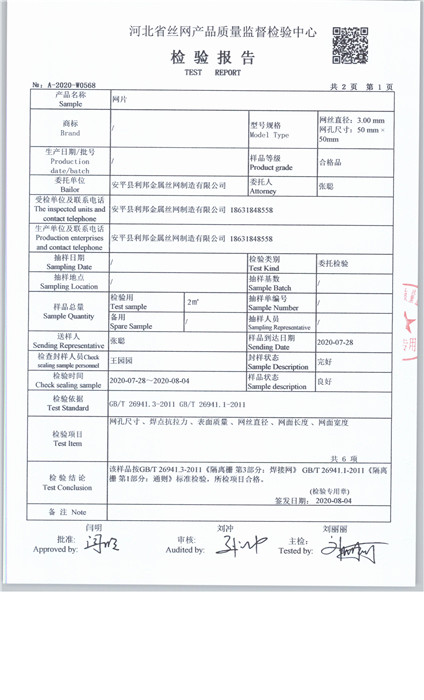 河北省丝网产品质量监督检验中心
检验报告
TEST REPORT
№: A-2020-W0568
共 2 页 第 1 页
产品名称
Sample
网片
商标
Brand
/
型号规格
Model Type
网丝直径: 3.00 mm
网孔尺寸: 50 mm×
50mm
生产日期/批号
Production
date/batch
/
样品等级
Product grade
合格品
委托单位
Bailor
安平县利邦金属丝网制造有限公司
委托人
Attorney
张聪
受检单位及联系电话
The inspected units and
contact telephone
安平县利邦金属丝网制造有限公司 18631848558
生产单位及联系电话
Production enterprises
and contact telephone
安平县利邦金属丝网制造有限公司 18631848558
抽样日期
Sampling Date
/
检验类别
Test Kind
委托检验
抽样地点
Sampling Location
/
抽样基数
Sample Batch
/
样品总量
Sample Quantity
检验用
Test sample
2㎡
抽样单编号
Sample Number
/
备用
Spare Sample
/
抽样人员
Sampling Representative
/
送样人
Sending Representative
张聪
样品到达日期
Sending Date
2020-07-28
检查封样人员Check
sealing sample personnel
王园园
封样状态
Sample Description
完好
检验时间
Check sealing sample
2020-07-28～2020-08-04
样品状态
Sample description
良好
检验依据
Test Standard
GB/T 26941.3-2011 GB/T 26941.1-2011
检验项目
Test Item
网孔尺寸、焊点抗拉力、表面质量、网丝直径、网面长度、网面宽度
共 6 项
检验结论
Test Conclusion
该样品按GB/T 26941.3-2011《隔离栅 第3部分: 焊接网》 GB/T 26941.1-2011《隔离
栅 第1部分: 通则》标准检验，所检项目合格。
(检验专用章)
签发日期: 2020-08-04
备 注 Note
闫明
刘冲
刘丽丽
批准:
Approved by:
审核:
Audited by:
主检:
Tested by: